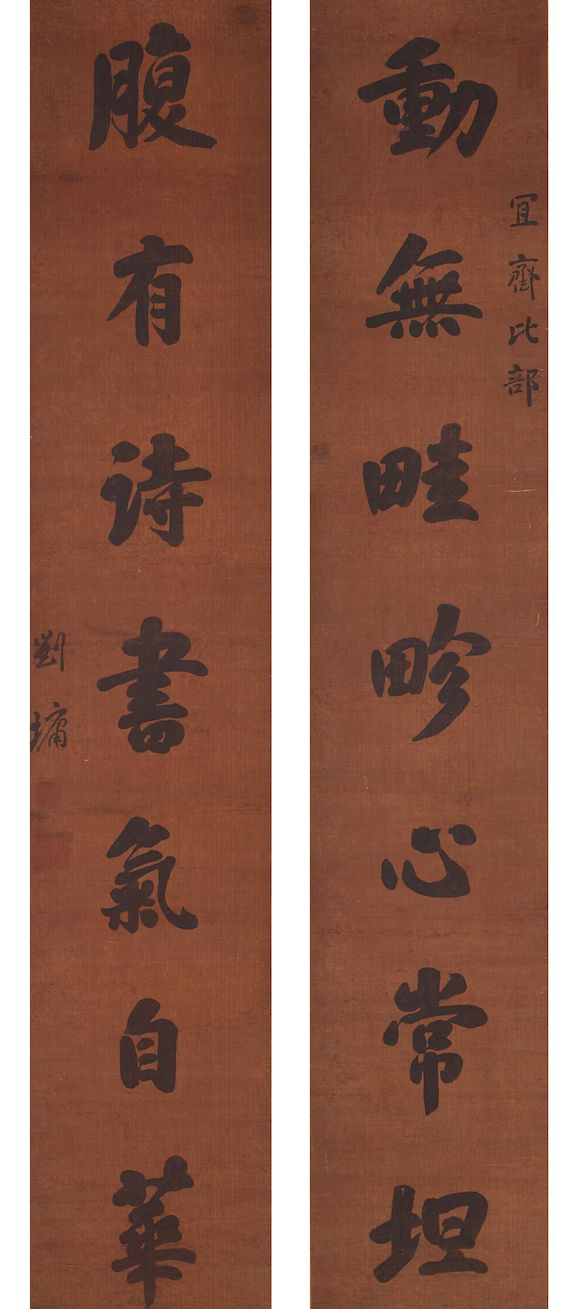 宜齋比部
動無畦畛心常坦
腹有詩書氣自華
劉墉